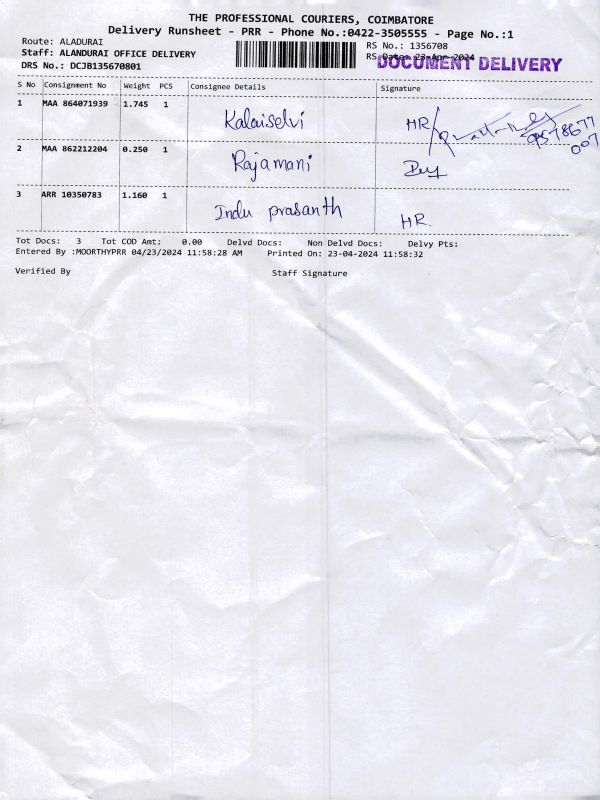 THE PROFESSIONAL COURIERS, COIMBATORE
Delivery Runsheet - PRR - Phone No.:0422-3505555 - Page No.:1
Route: ALADURAI
RS No.: 1356708
Staff: ALANDURAI OFFICE DELIVERY
RS Date: 23-Apr-2024
DOCUMENT DELIVERY
DRS No.: DCJB135670801
S No Consignment No Weight PCS Consignee Details Signature
1 MAA 864071939 1.745 1 Kalaiselvi HR/
9578677
007
2 MAA 862212204 0.250 1 Rajamani
3 ARR 10350783 1.160 1 Indu prasanth HR.
Tot Docs: 3 Tot COD Amt: 0.00 Delvd Docs: Non Delvd Docs: Delvy Pts:
Entered By :MOORTHYPRR 04/23/2024 11:58:28 AM Printed On: 23-04-2024 11:58:32
Verified By Staff Signature